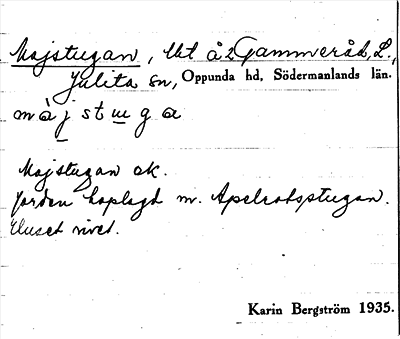 Majstugan, lht å Gammeråd, L.,
Julita sn, Oppunda hd, Södermanlands län.
màjstuga
Majstugan ak.
Jorden hoplagd m. Apelrotsstugan.
Huset rivet.
Karin Bergström 1935.